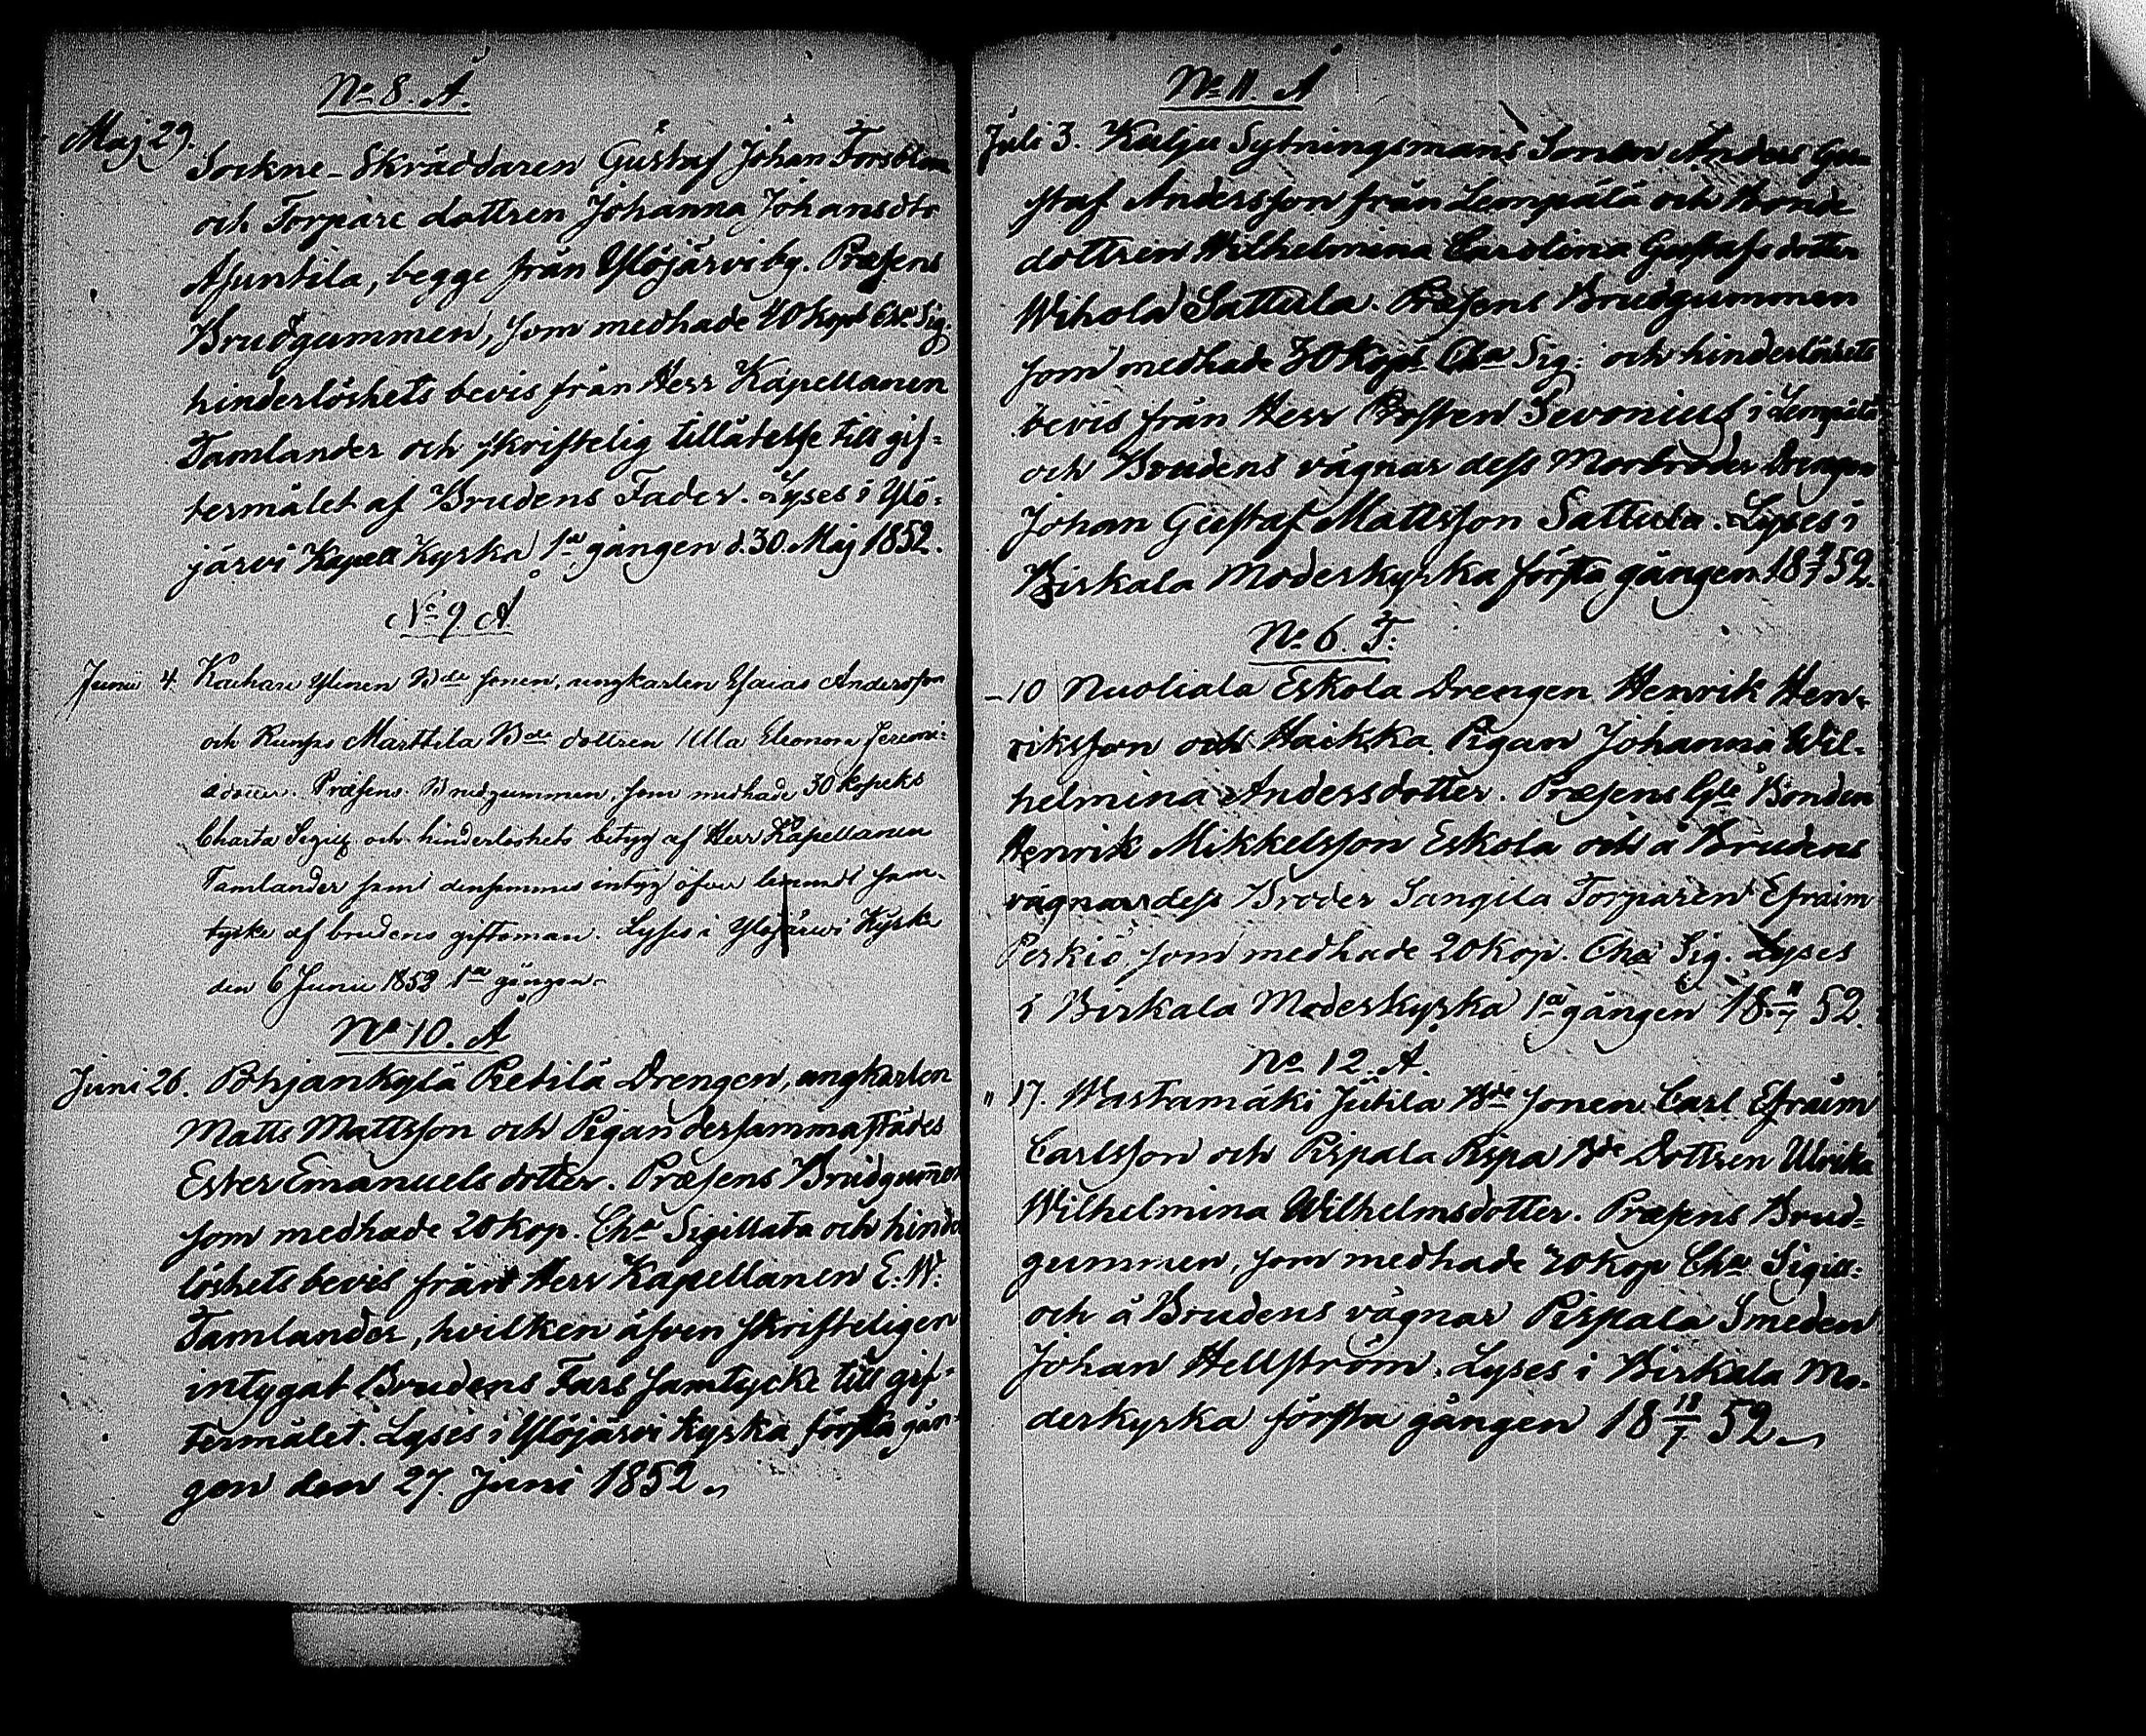 No 8. A.
Maj 29.
Sockne-Skräddaren Gustaf Johan Forsblom
och Torpare dottren Johanna Johansdtr
Asuntila, begge från Ylöjärvi by. Præsens
Brudgummen, som medhade 20 kops Cha Sig.
hinderlöshets bevis från Herr Kapellanen
Tamlander och skriftelig tillåtelse till gif-
termålet af Brudens Fader. Lyses i Ylö-
järvi Kapell Kyrka 1a gången d. 30. Maj 1852.
No 9. A
Junii 4. Kaihari Ylinen Bde sonen, ungkarlen Esaias Andersson
och Runsas Marttila Bde dottren Ulla Eleonora Jeremi-
ædotter. Præsens Brudgummen, som medhade 30 kopeks
Charta Sigill och hinderlöshets betyg af Herr Kapellanen
Tamlander samt densammes intyg öfver lemnadt sam-
tycke af brudens giftoman. Lyses i Ylöjärwi Kyrka
den 6 Junii 1852 1a gången.
No 10. A
Juni 26. Pohjankylä Retilä Drengen, ungkarlen
Matts Mattsson och Pigan dersammastädes
Ester Emanuelsdotter. Præsens Brudgumen
som medhade 20 kop. Cha Sigillata och hinder
löshets bevis från Herr Kapellanen E. W.
Tamlander, hvilken äfven skrifteligen
intygat Brudens Fars samtycke till gif-
termålet. Lyses i Ylöjärvi kyrka första gån-
gen den 27. Juni 1852.
No 11. A
Juli 3. Kulju Sytningsmans Sonen Anders Gu-
staf Andersson från Lempälä och Bonde
dottren Wilhelmina Carolina Gustafsdotter
Wihola Sattula. Præsens Brudgummen
som medhade 30 Kops Cha Sig. och hinderlöshets
bevis från Herr Prosten Sevonius i Lempälä
och Brudens vägnar dess Morbroder Drengen
Johan Gustaf Mattsson Sattula. Lyses i
Birkala Moderkyrka första gången 18 4/7 52.
No 6. T.
- 10 Nuoliala Eskola Drengen Henrik Hen-
riksson och Haikka Pigan Johanna Wil-
helmina Andersdotter. Præsens Gle Bonden
Henrik Mikkelsson Eskola och å Brudens
vägnar dess Broder Sangila Torparen Efraim
Perkiö, som medhade 20 kop. Cha Sig. Lyses
i Birkala Moderkyrka 1a gången 18 11/7 52.
No 12. A.
" 17. Wastamäki Jutila Bde sonen Carl Efraim
Carlsson och Pispala Pispa Bde Dottren Ulrika
Wilhelmina Wilhelmsdotter. Præsens Brud-
gummen, som medhade 20 kop Cha Sigill.
och å Brudens vägnar Pispala Smeden
Johan Hellström. Lyses i Birkala Mo-
derkyrka första gången 18 18/7 52.